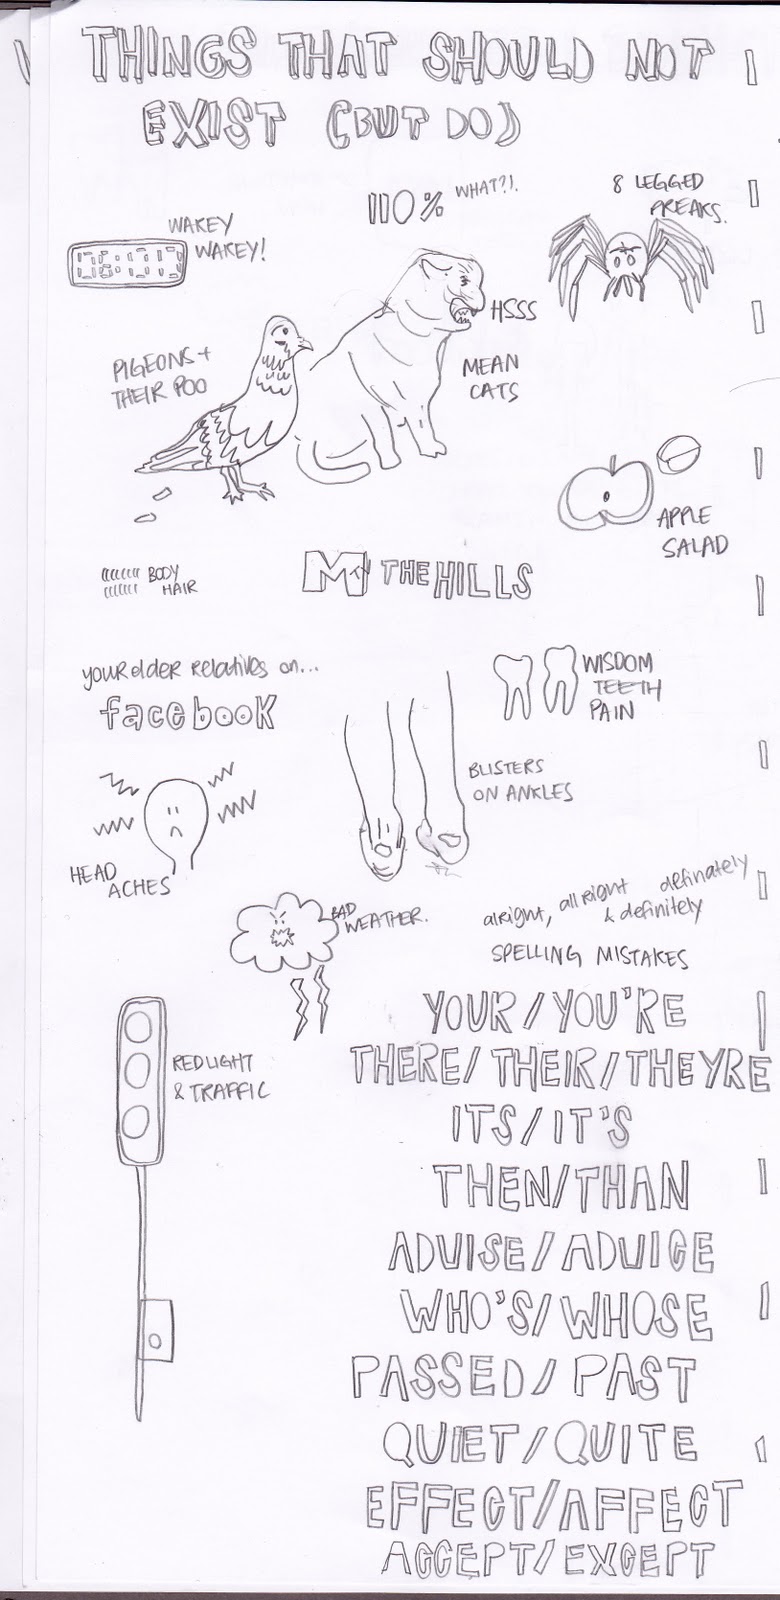 THINGS THAT SHOULD NOT
EXIST (BUT DO)
WAKEY
WAKEY!
110% WHAT?!.
8 LEGGED
FREAKS.
HSSS
PIGEONS +
THEIR POO
MEAN
CATS
APPLE
SALAD
BODY
HAIR
MTV THE HILLS
your elder relatives on...
facebook
WISDOM
TEETH
PAIN
BLISTERS
ON ANKLES
HEAD
ACHES
BAD
WEATHER.
alright, all right definately
& definitely
SPELLING MISTAKES
RED LIGHT
& TRAFFIC
YOUR/YOU'RE
THERE/THEIR/THEYRE
ITS/IT'S
THEN/THAN
ADVISE/ADVICE
WHO'S/WHOSE
PASSED/PAST
QUIET/QUITE
EFFECT/AFFECT
ACCEPT/EXCEPT